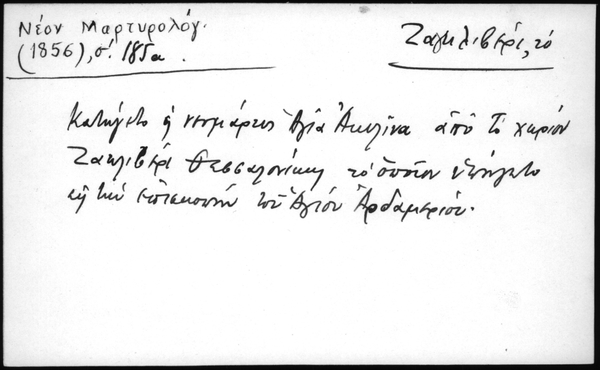 Νέον Μαρτυρολόγ.
(1856), σ. 185α.
Ζαγκλιβέρι, τό
Κατήγετο ἡ νεομάρτυς Ἁγία Ἀκυλίνα ἀπό τό χωρίον
Ζακλιβέρι Θεσσαλονίκης τό ὁποῖον ὑπήγετο
εἰς τήν ἐπισκοπήν τοῦ Ἁγίου Ἀρδαμερίου.